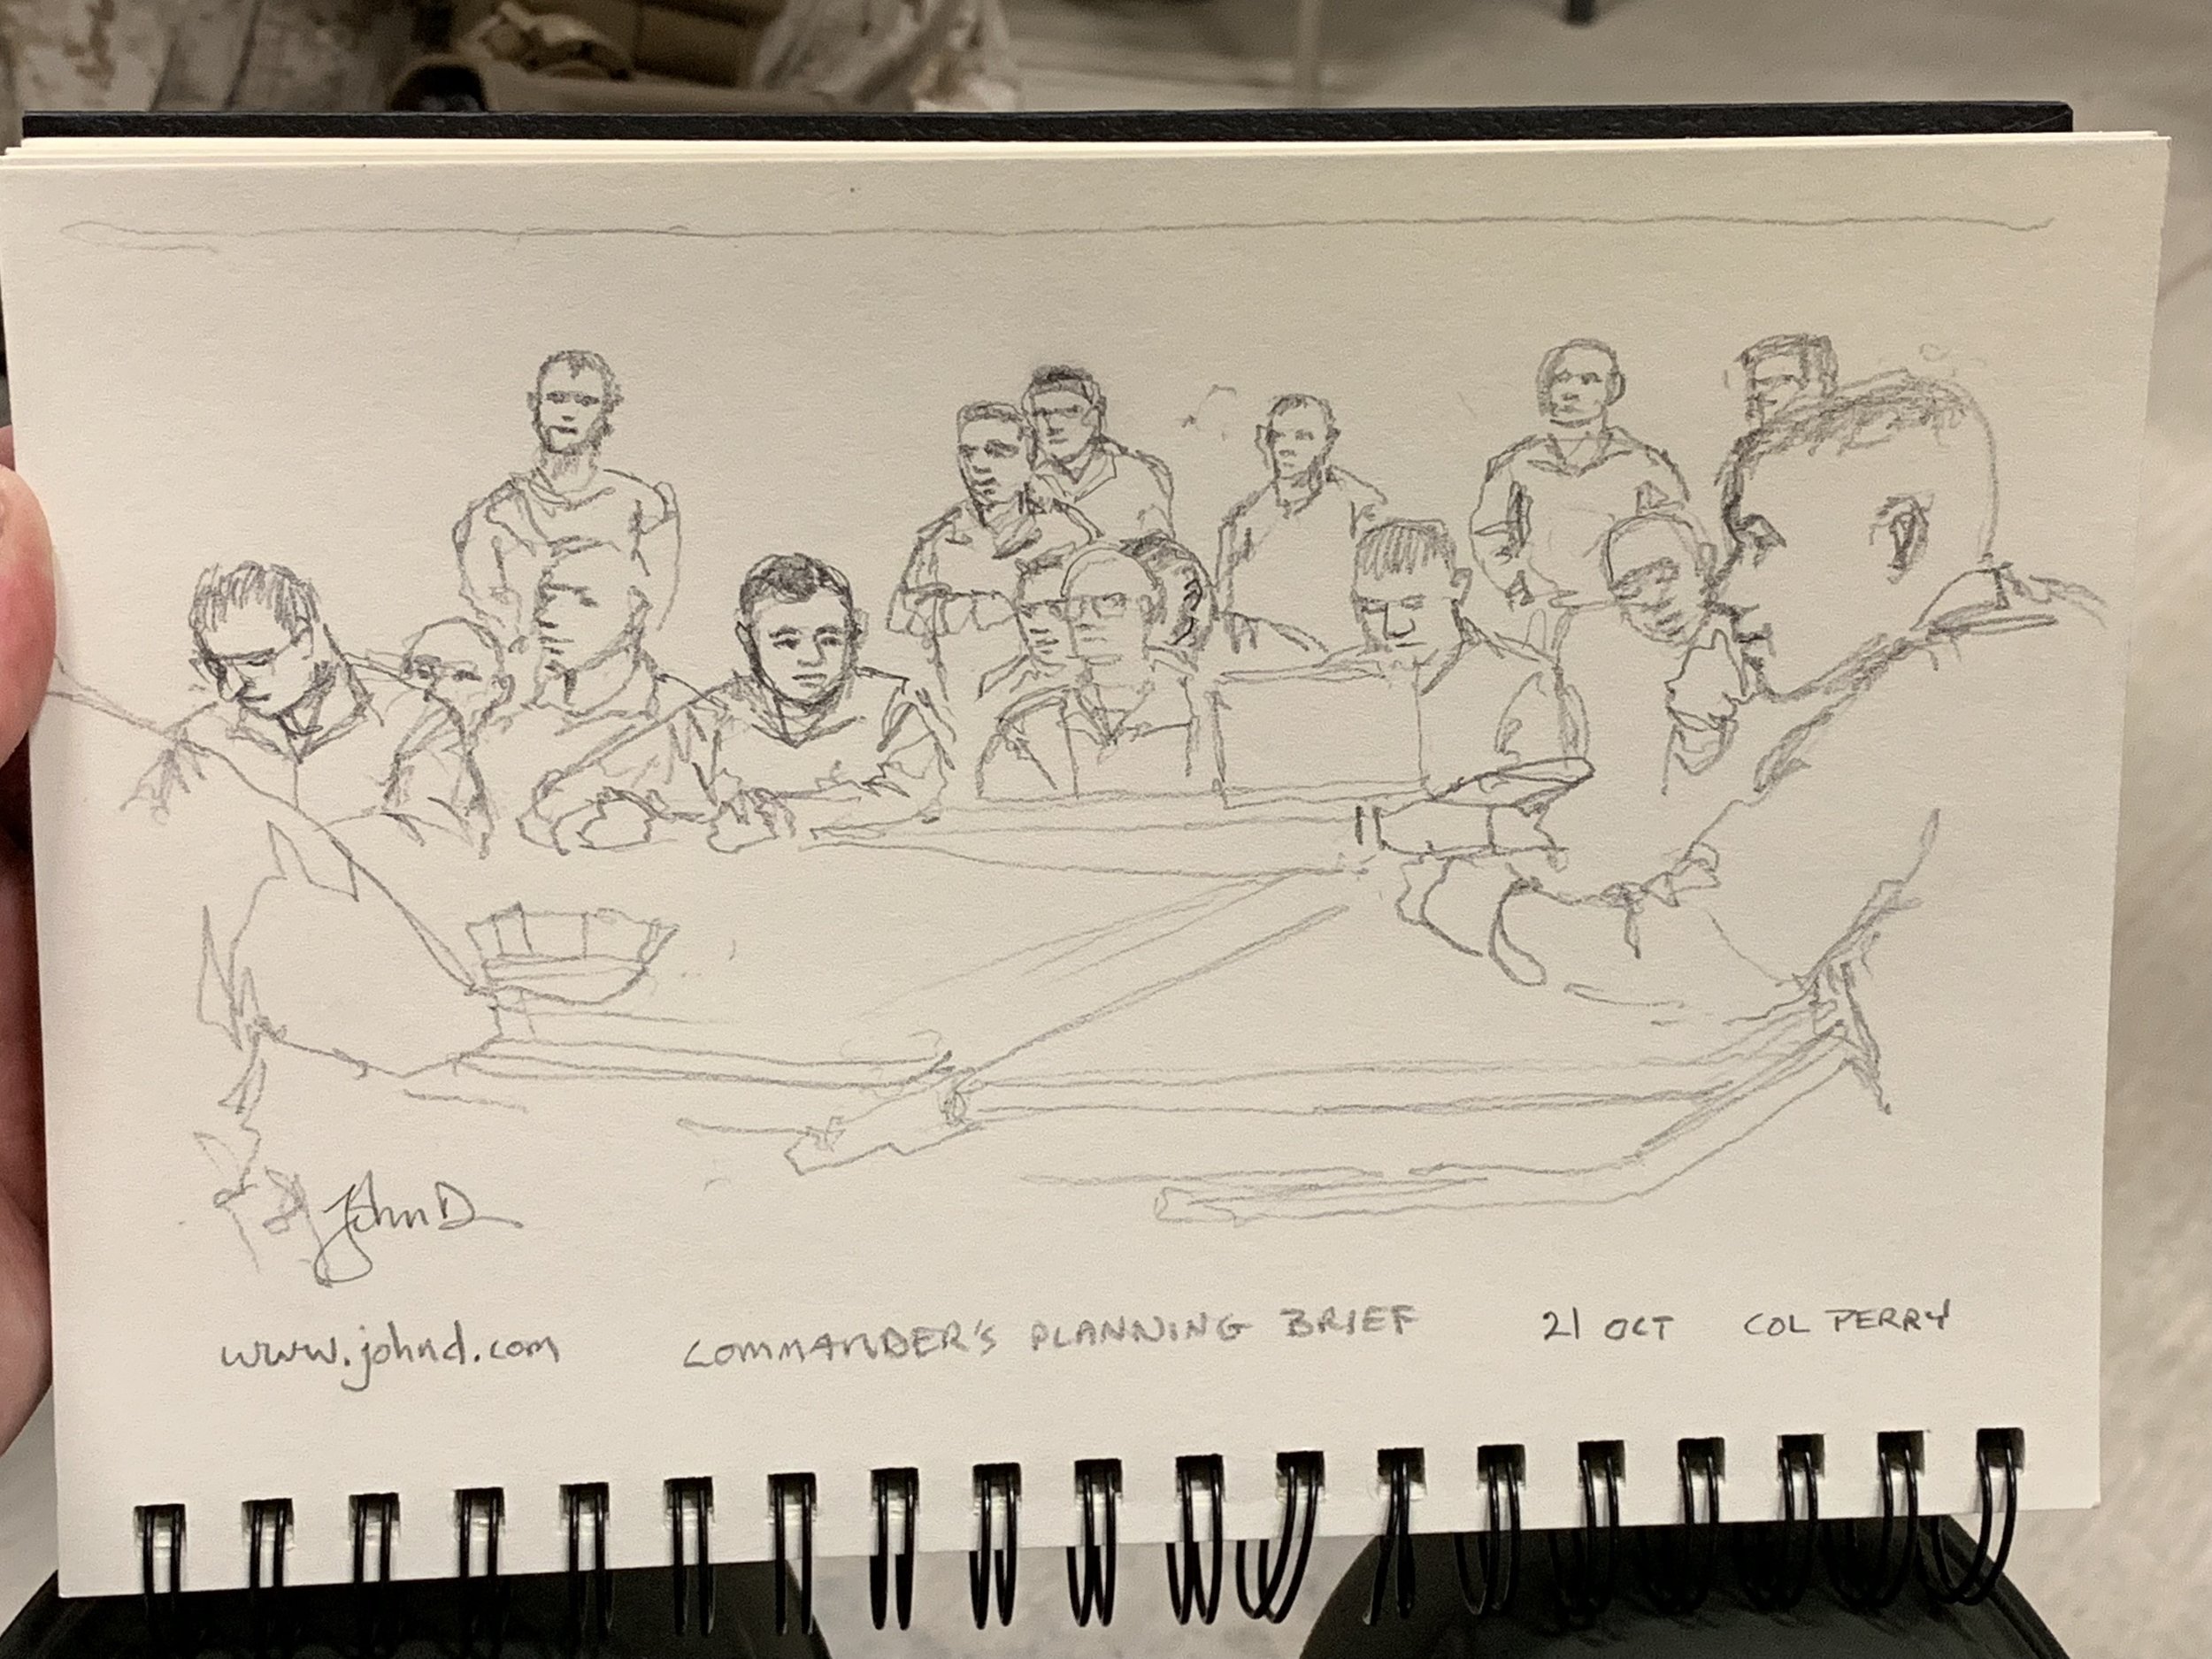 John D
www.johnd.com COMMANDER'S PLANNING BRIEF 21 OCT COL PERRY